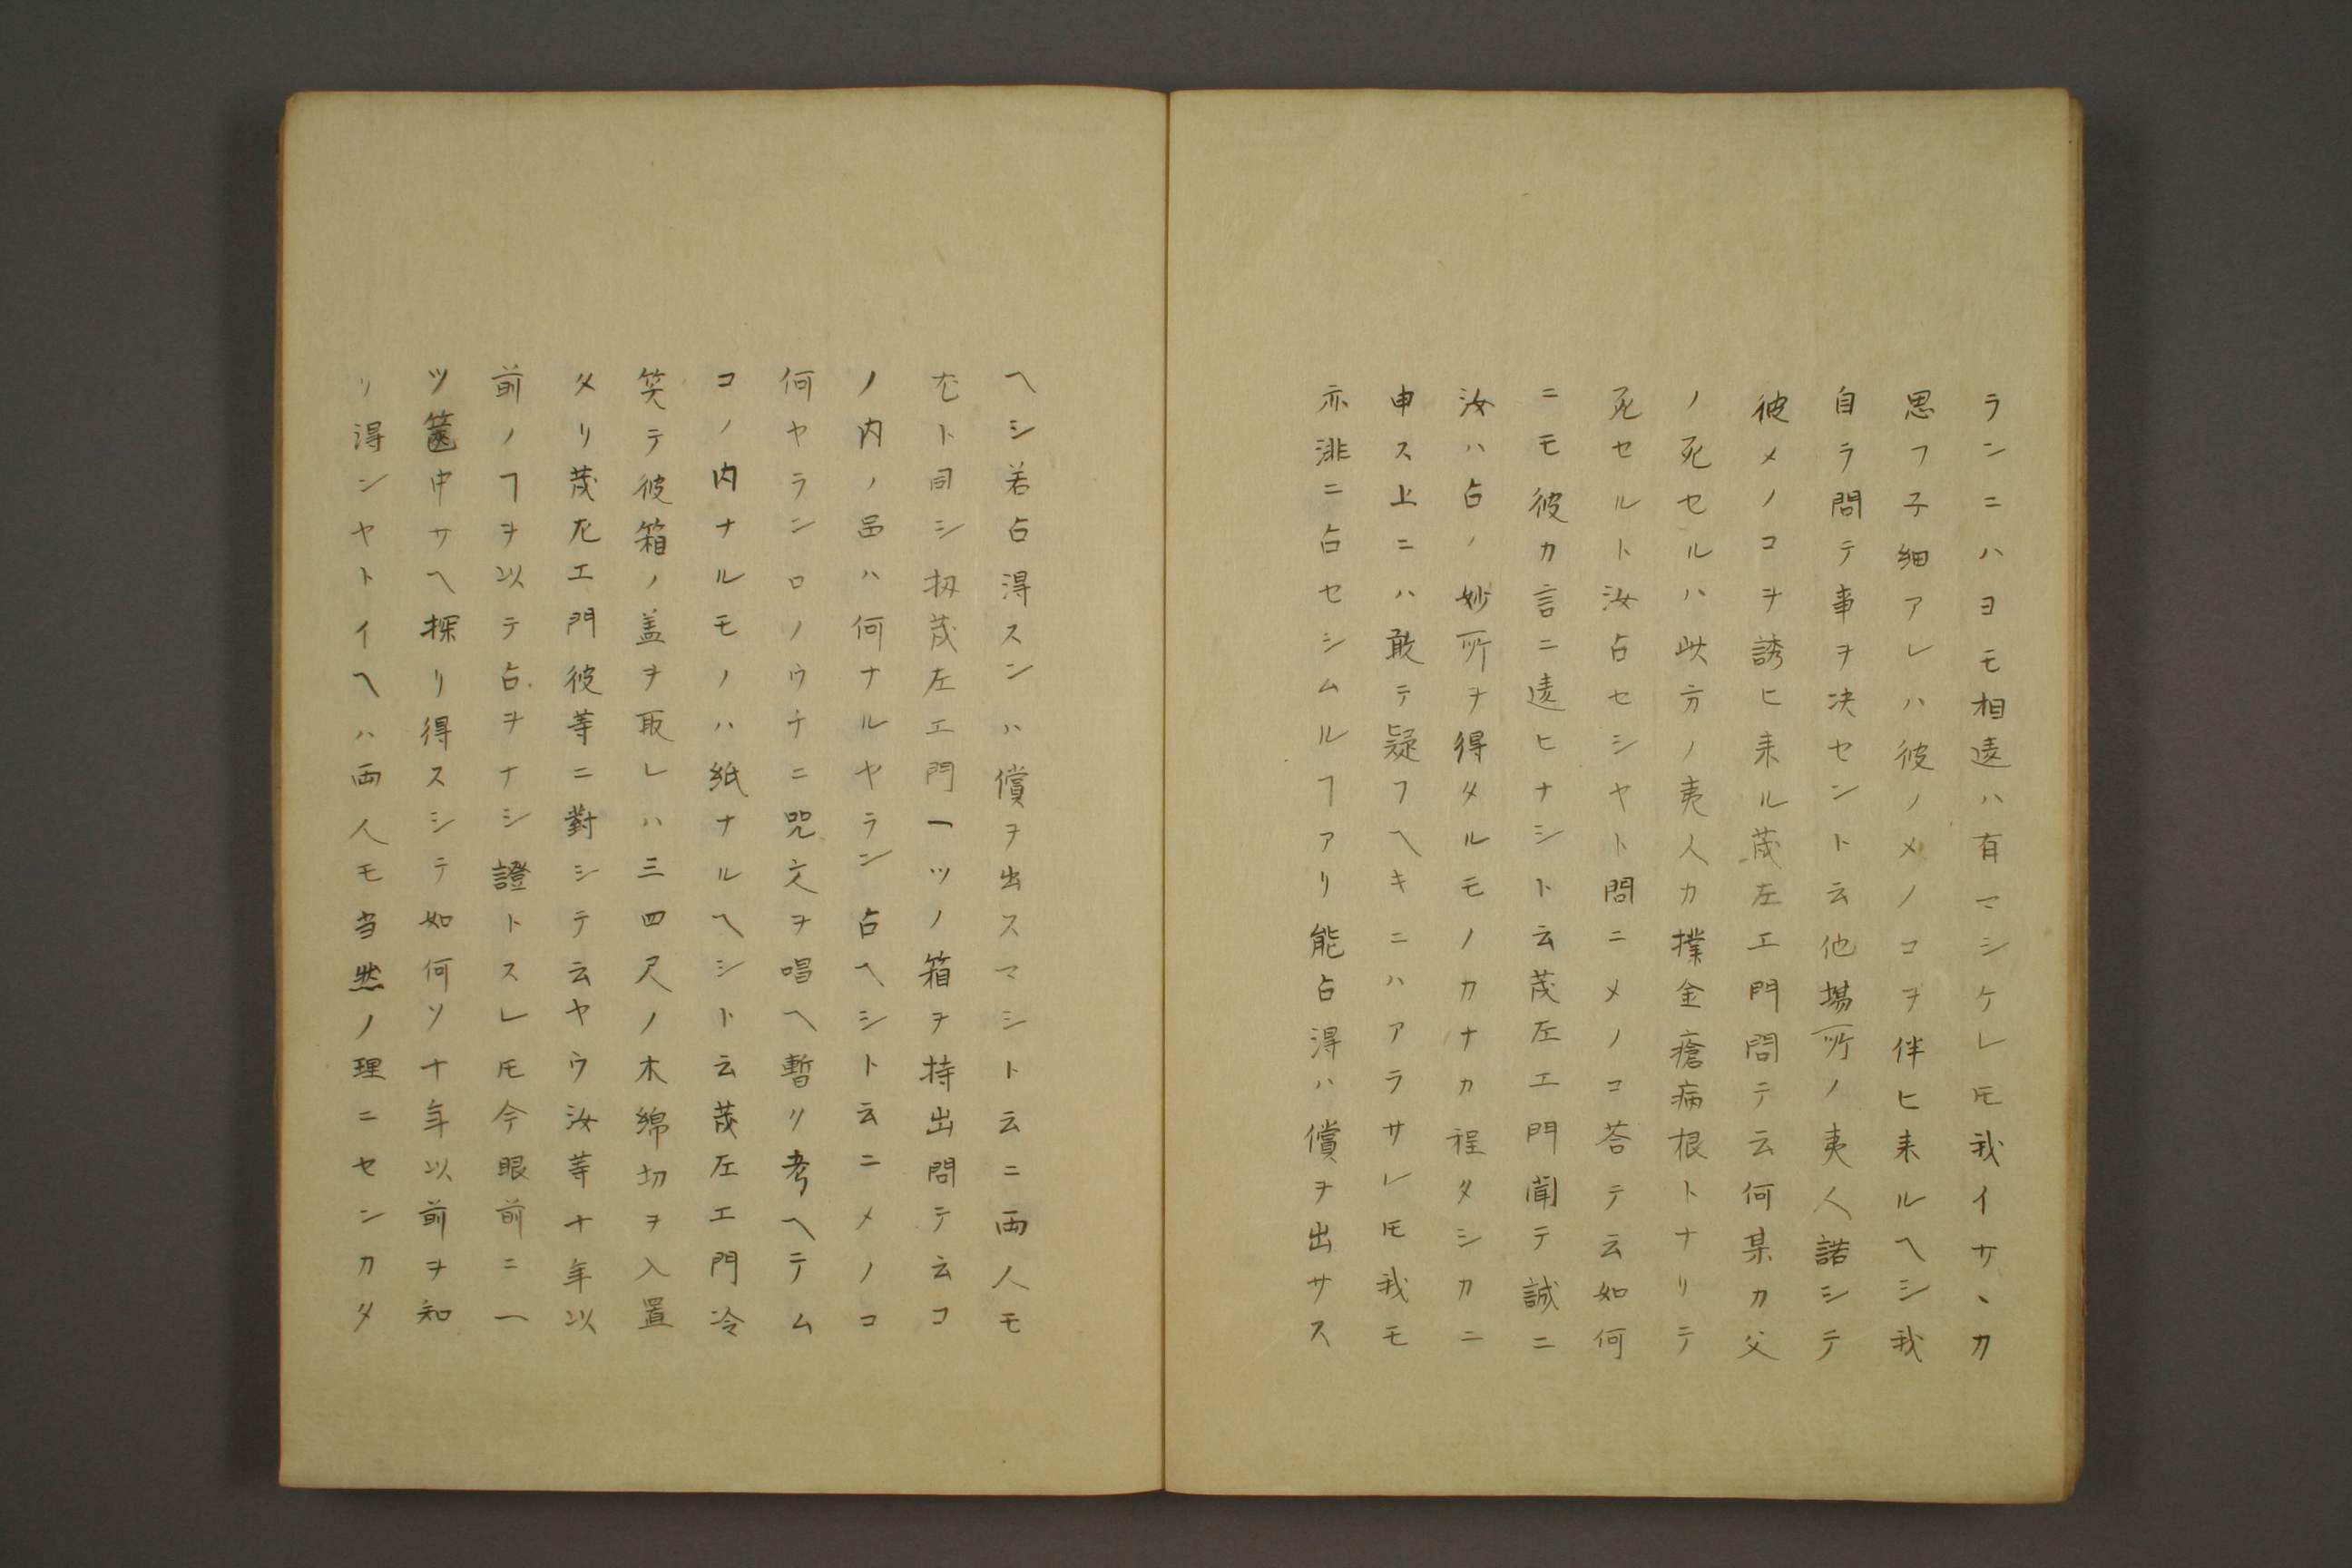 ランニハヨモ相違ハ有マシケレ𪜈我イサヽカ
思フ子細アレハ彼ノメノコヲ伴ヒ来ルヘシ我
自ラ問テ事ヲ决セント云他場所ノ夷人諾シテ
彼メノコヲ誘ヒ来ル茂左エ門問テ云何某カ父
ノ死セルハ此方ノ夷人カ撲金瘡病根トナリテ
死セルト汝占セシヤト問ニメノコ荅テ云如何
ニモ彼カ言ニ違ヒナシト云茂左エ門聞テ誠ニ
汝ハ占ノ妙所ヲ得タルモノカナカ程タシカニ
申ス上ニハ敢テ疑フヘキニハアラサレ𪜈我モ
亦 ニ占セシムルヿアリ能占得ハ償ヲ出サス
ヘシ若占得スンハ償ヲ出スマシト云ニ両人モ
尤ト同シ扨茂左エ門一ツノ箱ヲ持出問テ云コ
ノ内ノ品ハ何ナルヤラン占ヘシト云ニメノコ
何ヤラン口ノウチニ咒文ヲ唱ヘ暫リ考ヘテム
コノ内ナルモノハ紙ナルヘシト云茂左エ門冷
笑テ彼箱ノ盖ヲ取レハ三四尺ノ木綿切ヲ入置
タリ茂左エ門彼等ニ對シテ云ヤウ汝等十年以
前ノヿヲ以テ占ヲナシ證トスレ𪜈今眼前ニ一
ツ篋中サヘ探リ得スシテ如何ソ十年以前ヲ知
リ得ンヤトイヘハ両人モ当然ノ理ニセンカタ